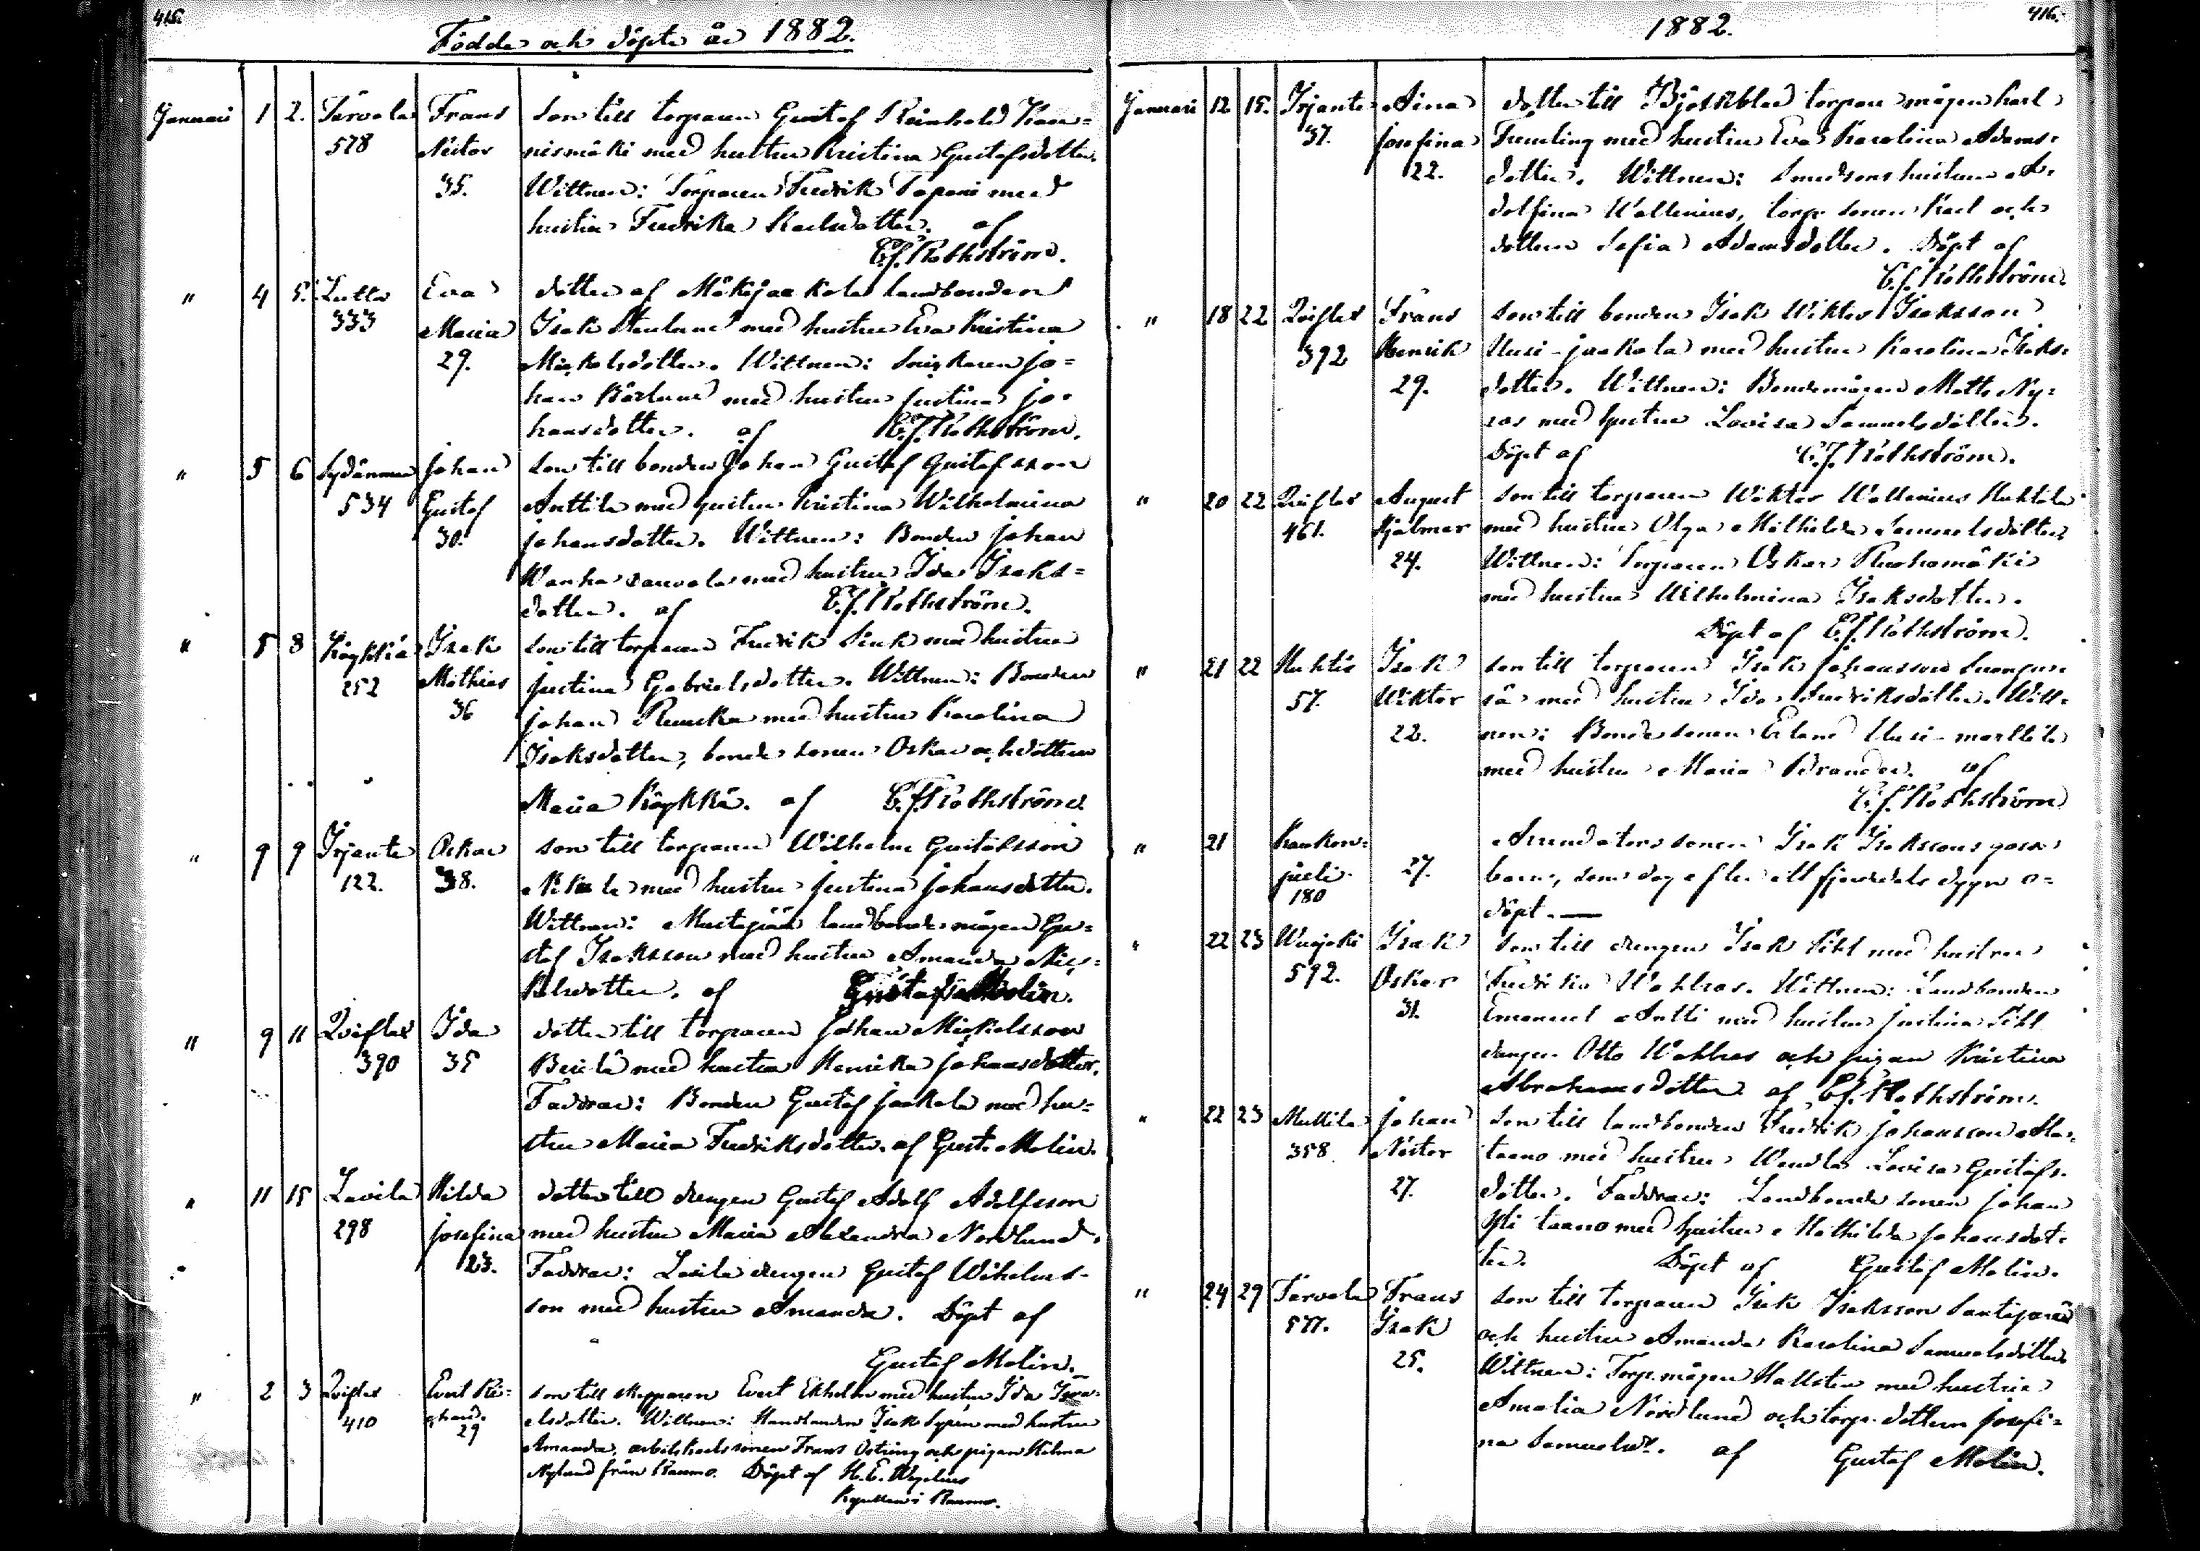 415.
Födde och döpte år 1882.
Januari 1 2. Tarvola Frans son till torparen Gustaf Reinhold Kan=
578 Nestor nismäki med hustru Kristina Gustafsdotter.
35. Wittnen: Torparen Fredrik Tapani med
hustru Fredrika Karlsdotter. af
C.J. Rothström.
" 4 5. Lutta Eva dotter af Mäkijaakola landbonden
333 Maria Isak Stenlund med hustru Eva Kristina
29. Mickelsdotter. Wittnen: Snickaren Jo=
han Bärlund med hustru Justina Jo=
hansdotter. af C.J. Rothström.
" 5 6 Sydänmaa Johan son till bonden Johan Gustaf Gustafsson
534 Gustaf Anttila med hustru Kristina Wilhelmina
30. Johansdotter. Wittnen: Bonden Johan
Wanha med hustru Ida Isaks=
dotter. af C.J. Rothström.
" 5 8 Köykkä Isak son till torparen Fredrik Sink med hustru
252 Mathias Justina Gabrielsdotter. Wittnen: Bonden
36 Johan Ruuska med hustru Karolina
Isaksdotter, bonde sonen Oskar och dottern
Maria Köykkä. af C.J. Rothström.
" 9 9 Irjante Oskar son till torparen Wilhelm Gustafsson
122. 38. Nikula med hustru Justina Johansdotter.
Wittnen: Mustajärvi landbonde mågen Gu=
staf Isaksson med hustru Amanda Mic=
kelsdotter. af Gustaf Molin.
" 9 11 Qvistes Ida dotter till torparen Johan Mickelsson
390 35 med hustru Henrika Johansdotter.
Faddrar: Bonden Gustaf Jaakola med hu=
stru Maria Fredriksdotter. af Gust. Molin.
" 11 15 Lavila Hilda dotter till drengen Gustaf Adolf Adolfsson
298 Josefina med hustru Maria Alexandra Nordlund.
23. Faddrar: Lavila drengen Gustaf Wilhelms=
son med hustru Amanda. Döpt af
Gustaf Molin.
" 2 3 410 Evert Ri= son till skepparen Evert Ekholm med hustru Ida Isra=
chard. elsdotter. Wittnen: Handlanden Isak Syren med hustru
29 Amanda, arbetskarlssonen Frans Östring och pigan Hilma
Nylund från Raumo. Döpt af H.E. Wegelius
i Raumo.
1882. 416.
Januari 12 15. Irjante Aina dotter till Björkblad torpare mågen Karl
37. Josefina Fremling med hustru Eva Karolina Adams=
22. dotter. Wittnen: Smedsons hustrun A=
dolfina Wallenius, torp. sonen Karl och
dottern Sofia Adamsdotter. Döpt af
C.J. Rothström.
" 18 22 Frans son till bonden Isak Wiktor Isaksson
392 Henrik Uusi-jaakola med hustru Karolina Isaks=
29. dotter. Wittnen: Bondemågen Matts Ny=
ros med hustru Lovisa Samuelsdotter.
Döpt af C.J. Rothström.
" 20 22 August son till torparen Wiktor Wallenius Huhtala
461. Hjalmar med hustru Olga Mathilda Samuelsdotter
24. Wittnen: Torparen Oskar Ruohomäki
med hustru Wilhelmina Isaksdotter.
Döpt af C.J. Rothström.
" 21 22 Huhtis Isak son till torparen Isak Johansson Suonpää=
57. Wiktor sä med hustru Ida Fredriksdotter. Witt=
22. nen: Bondesonen Erland Uusi-marttila
med hustru Maria Brander. af
C.J. Rothström
" 21 Kaukom= Arrendatorssonen Isak Isakssons gosse
juela 27. barn, som dog efter ett fjerdedels dygn o=
180 döpt. —
" 22 23 Wuojoki Isak son till drengen Isak Sihl med hustru
592. Oskar Fredrika Wahlros. Wittnen: Landbonden
31. Emanuel Antti med hustru Justina Sihl
drengen Otto Wahlros och pigan Kristina
Abrahamsdotter af C.J. Rothström.
" 22 23 Mullila Johan son till landbonden Fredrik Johansson Ala=
358 Nestor taano med hustru Wendla Lovisa Gustafs=
27. dotter. Faddrar: Landbonde sonen Johan
Yli taano med hustru Mathilda Johansdot=
ter. Döpt af Gustaf Molin.
" 24 29 Tarvola Frans son till torparen Isak Isaksson Santajärvi
577. Isak och hustru Amanda Karolina Samuelsdotter
25. Wittnen: Torp.mågen Hallsten med hustru
Amalia Nordlund och torp. dottern Josefi=
na Samuelsdr. af Gustaf Molin.